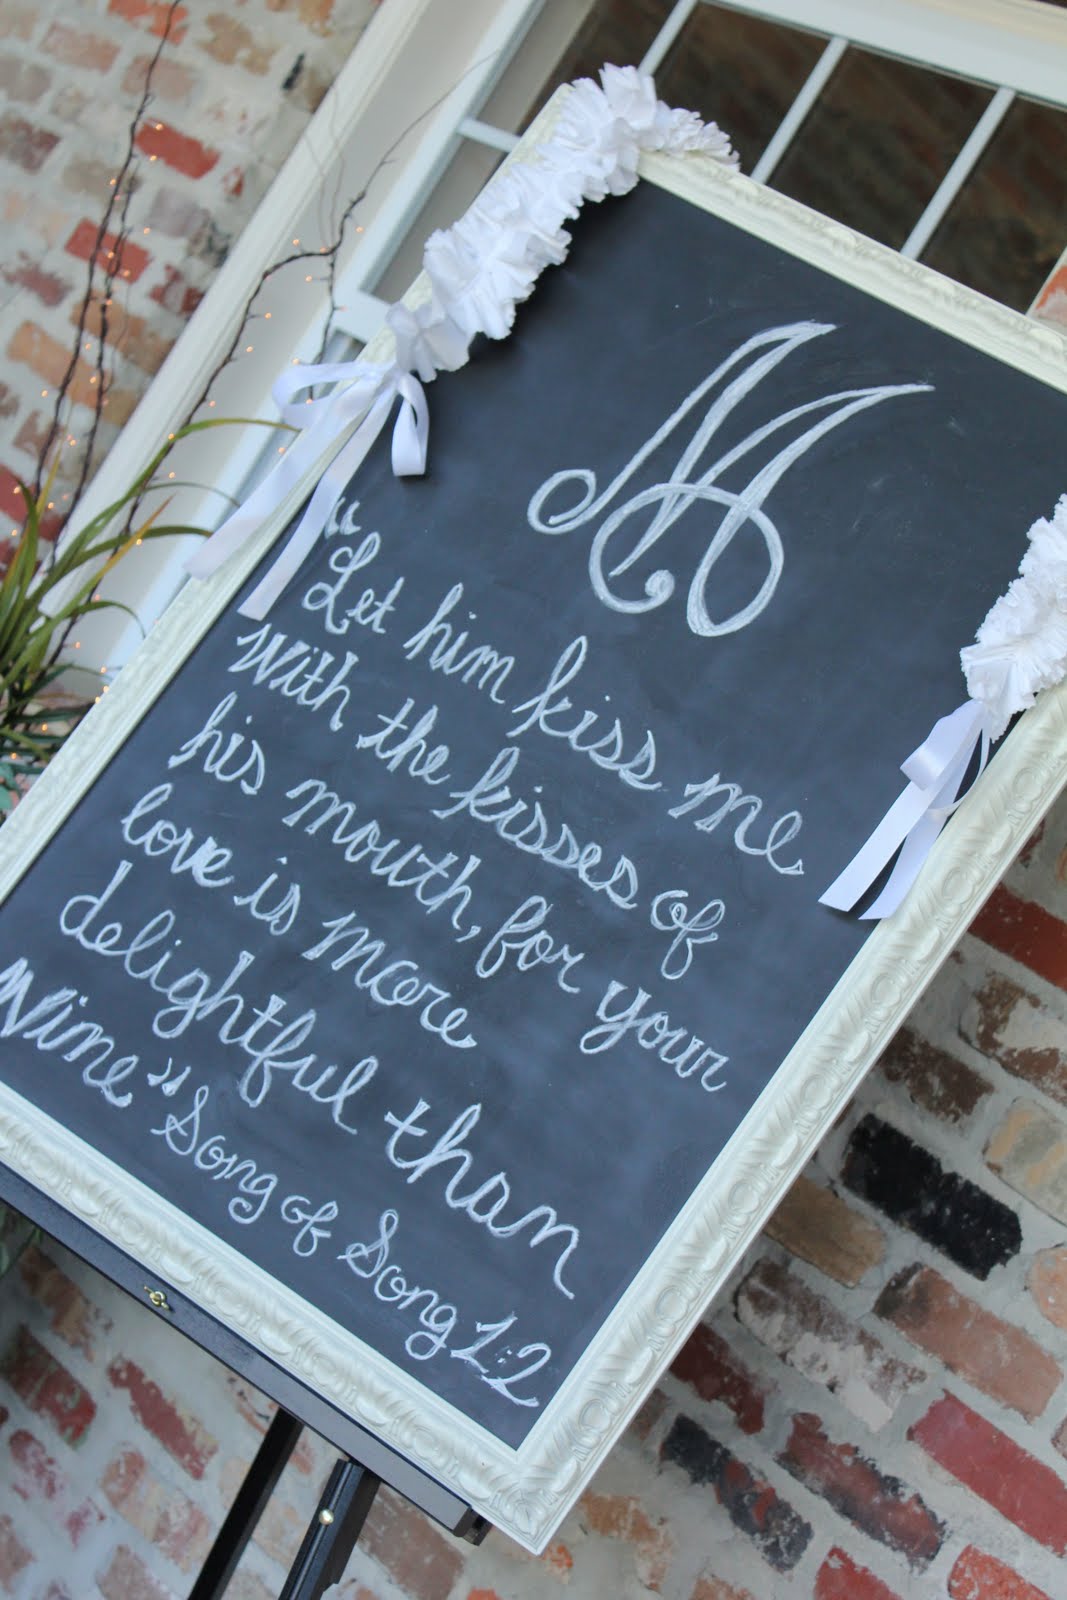 M
"Let him kiss me
With the kisses of
his mouth, for your
love is more
delightful than
Wine" Song of Song 1:2